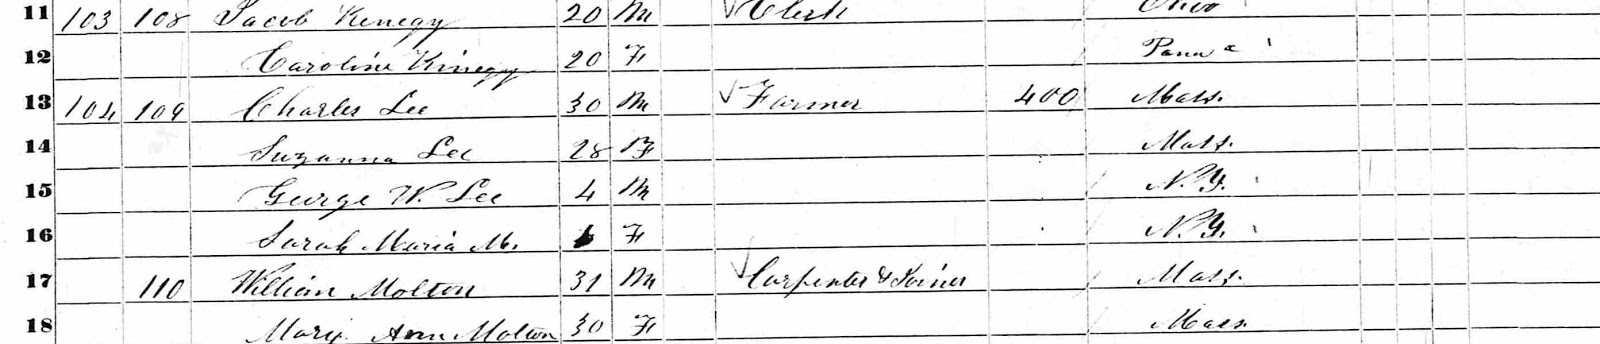 11 103 108 Jacob Kenegy 20 M Clerk Ohio
12 Caroline Kinegy 20 F Penna
13 104 109 Charles Lee 30 M Farmer 400 Mass.
14 Suzanna Lee 28 F Mass.
15 George W. Lee 4 M N.Y.
16 Sarah Maria M. F N.Y.
17 110 William Molton 31 M Carpenter & Joiner Mass.
18 Mary Ann Molton 30 F Mass